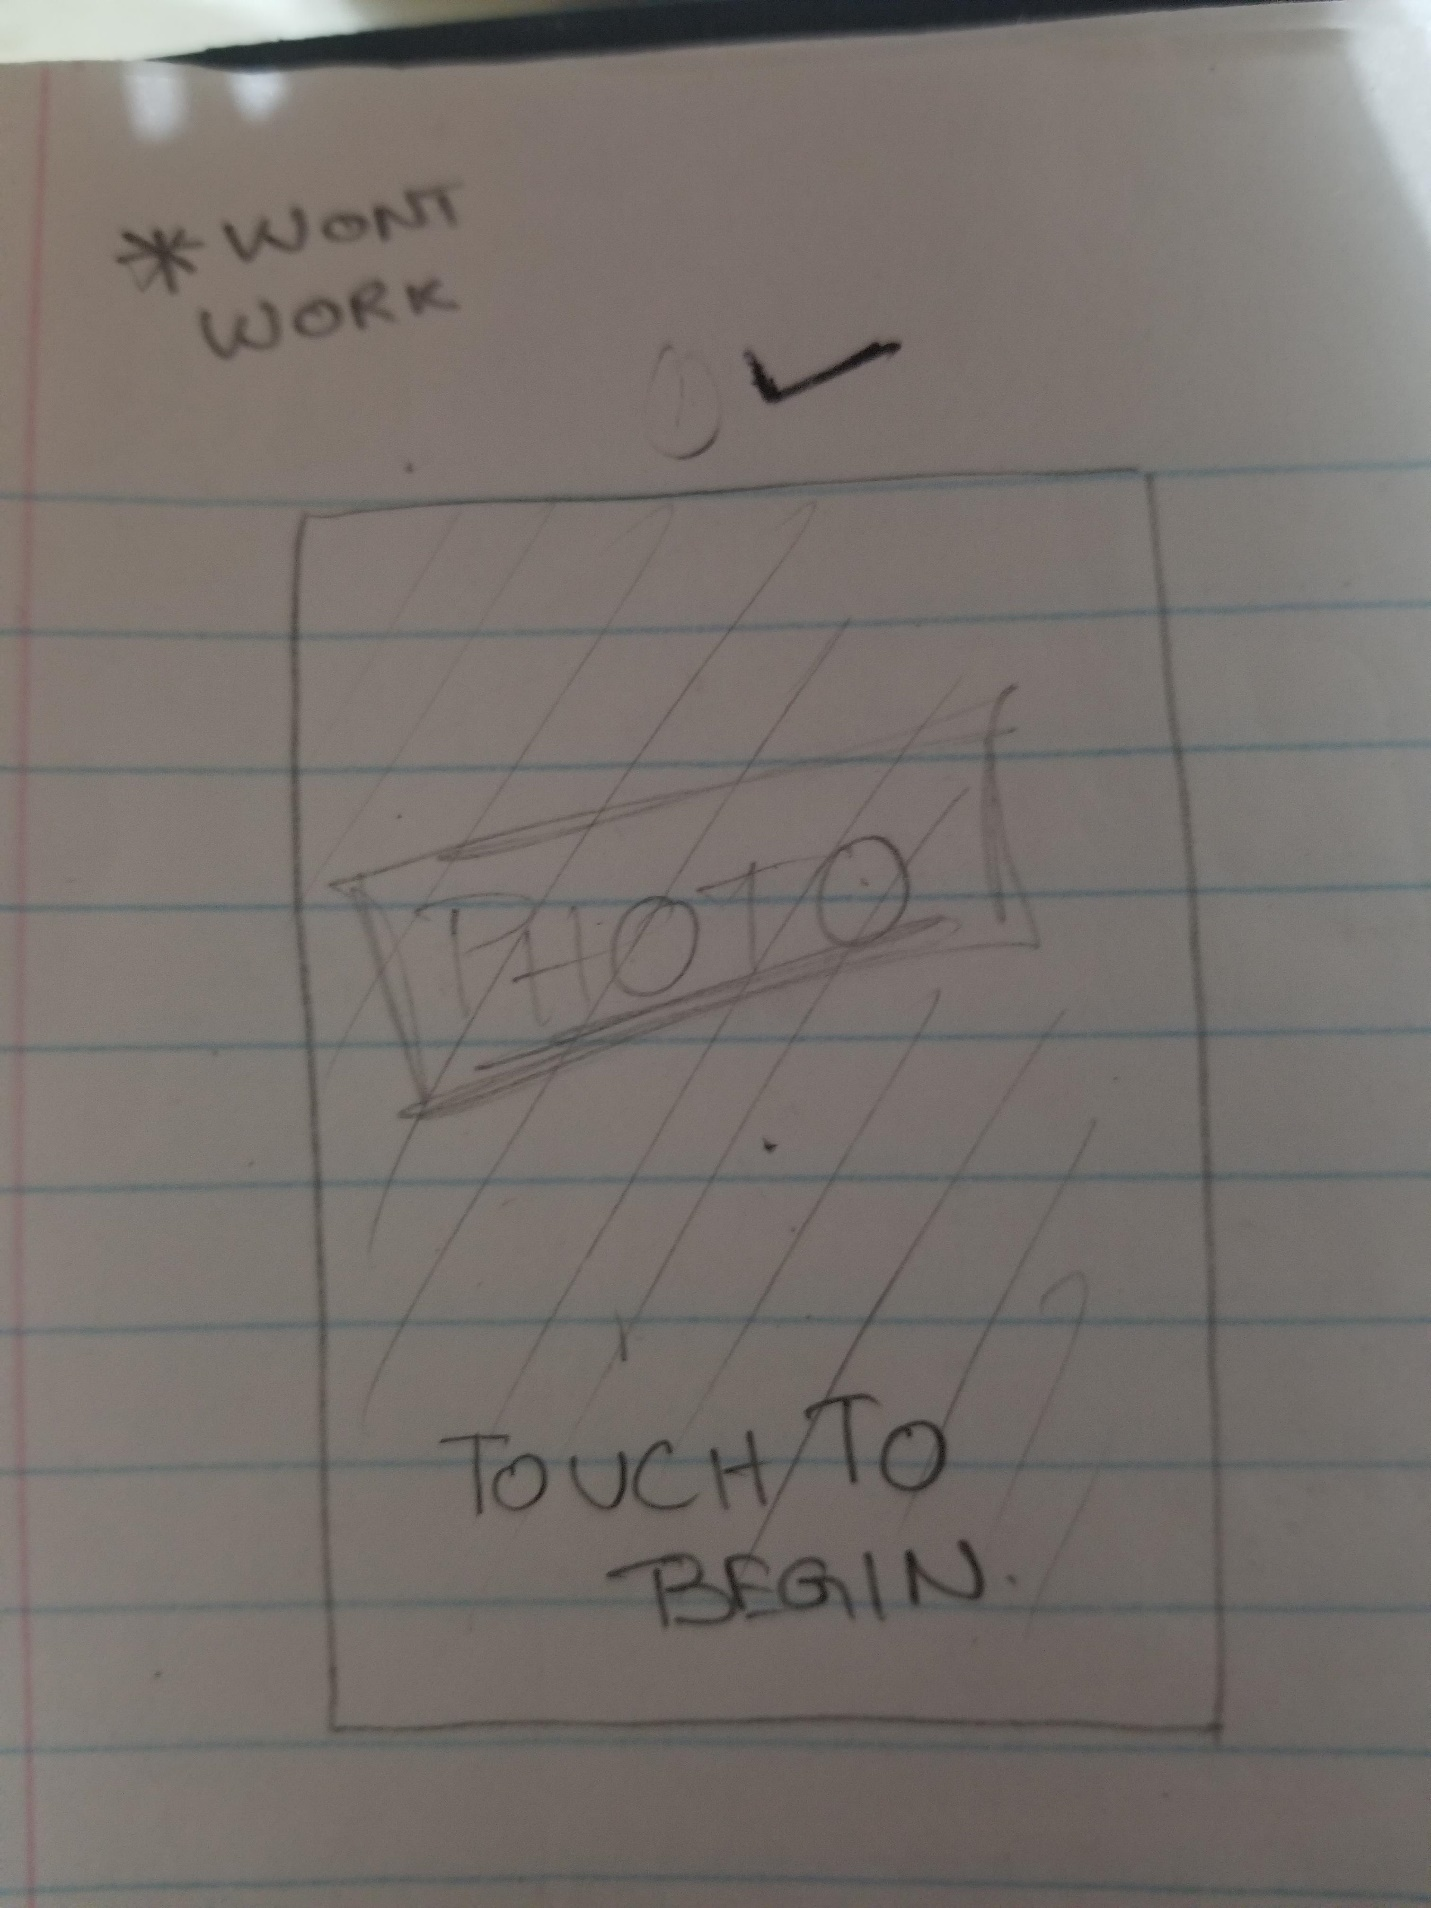 * WONT
WORK
1
PHOTO
TOUCH TO
BEGIN.